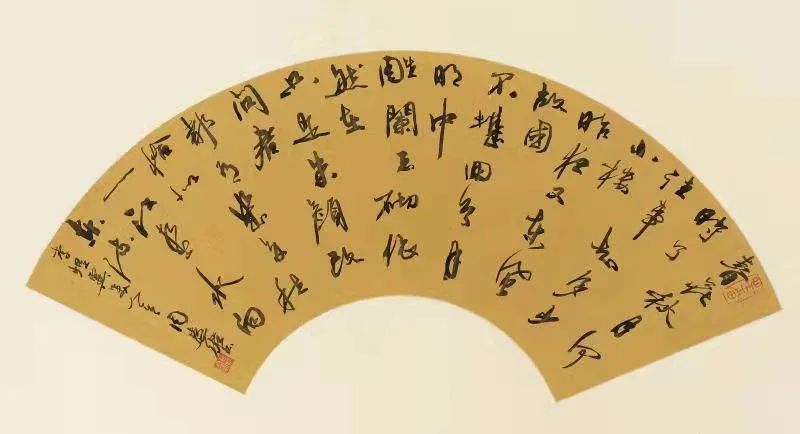 春花秋月何
時了
往事知多少
小樓
昨夜又東風
故國
不堪回首月
明中
雕闌玉砌依
然在
只是朱顏改
問君
都有幾多愁
恰似
一江春水向
東流
李煜虞美人 周